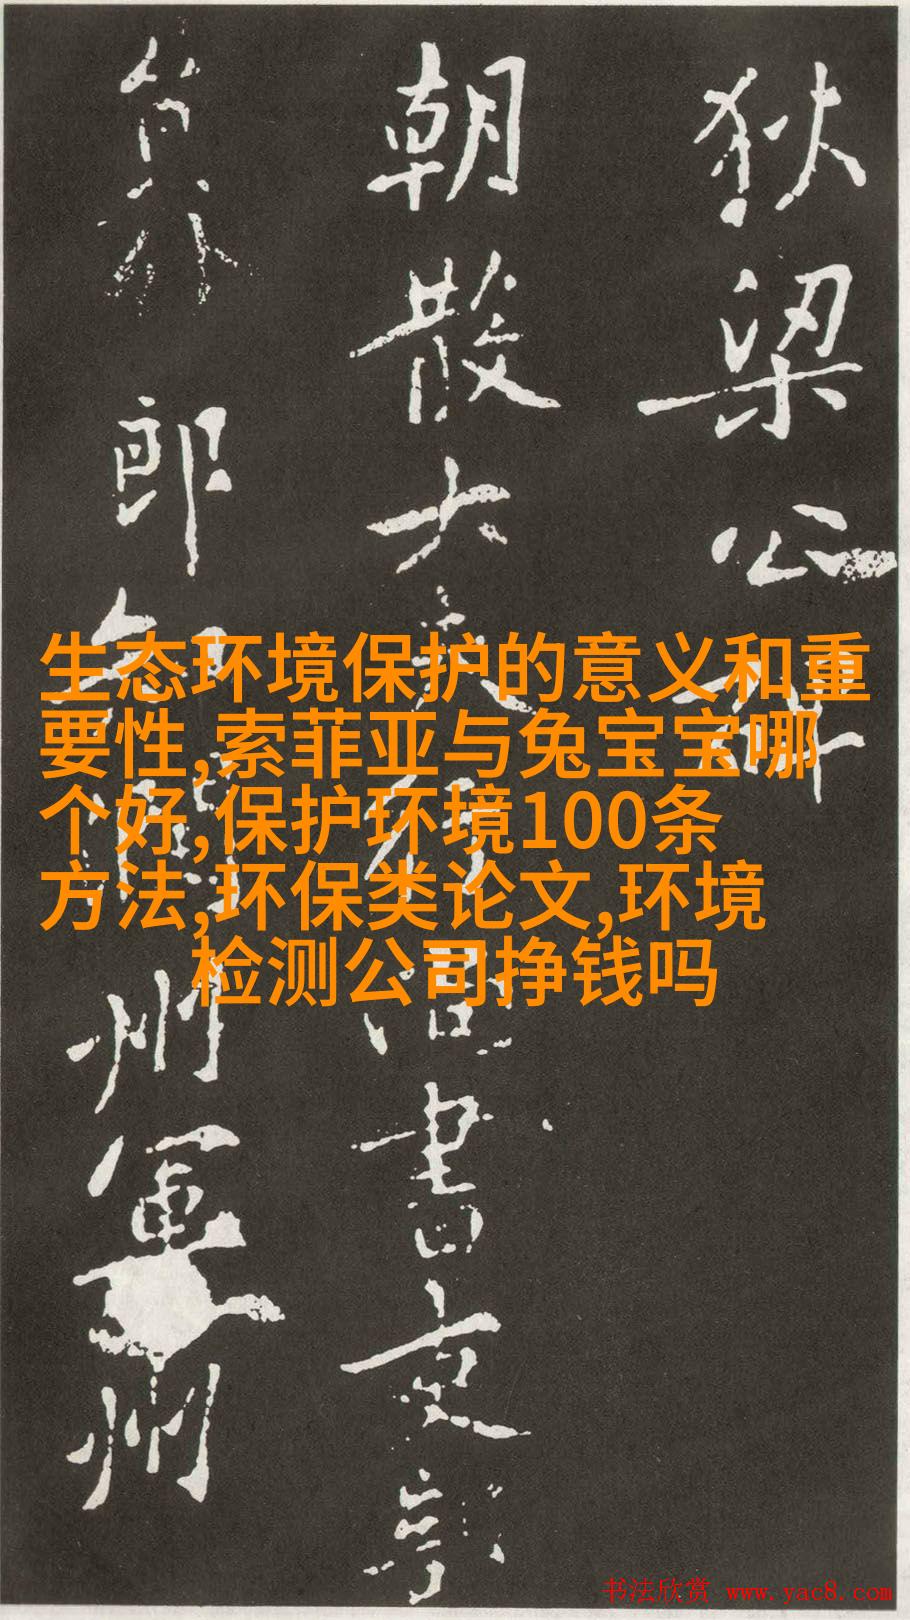 狄梁公碑
朝散大夫行尚書吏部
員外郎知潤州軍州
生态环境保护的意义和重
要性,索菲亚与兔宝宝哪
个好,保护环境100条
方法,环保类论文,环境
检测公司挣钱吗
书法欣赏 www.yac8.com